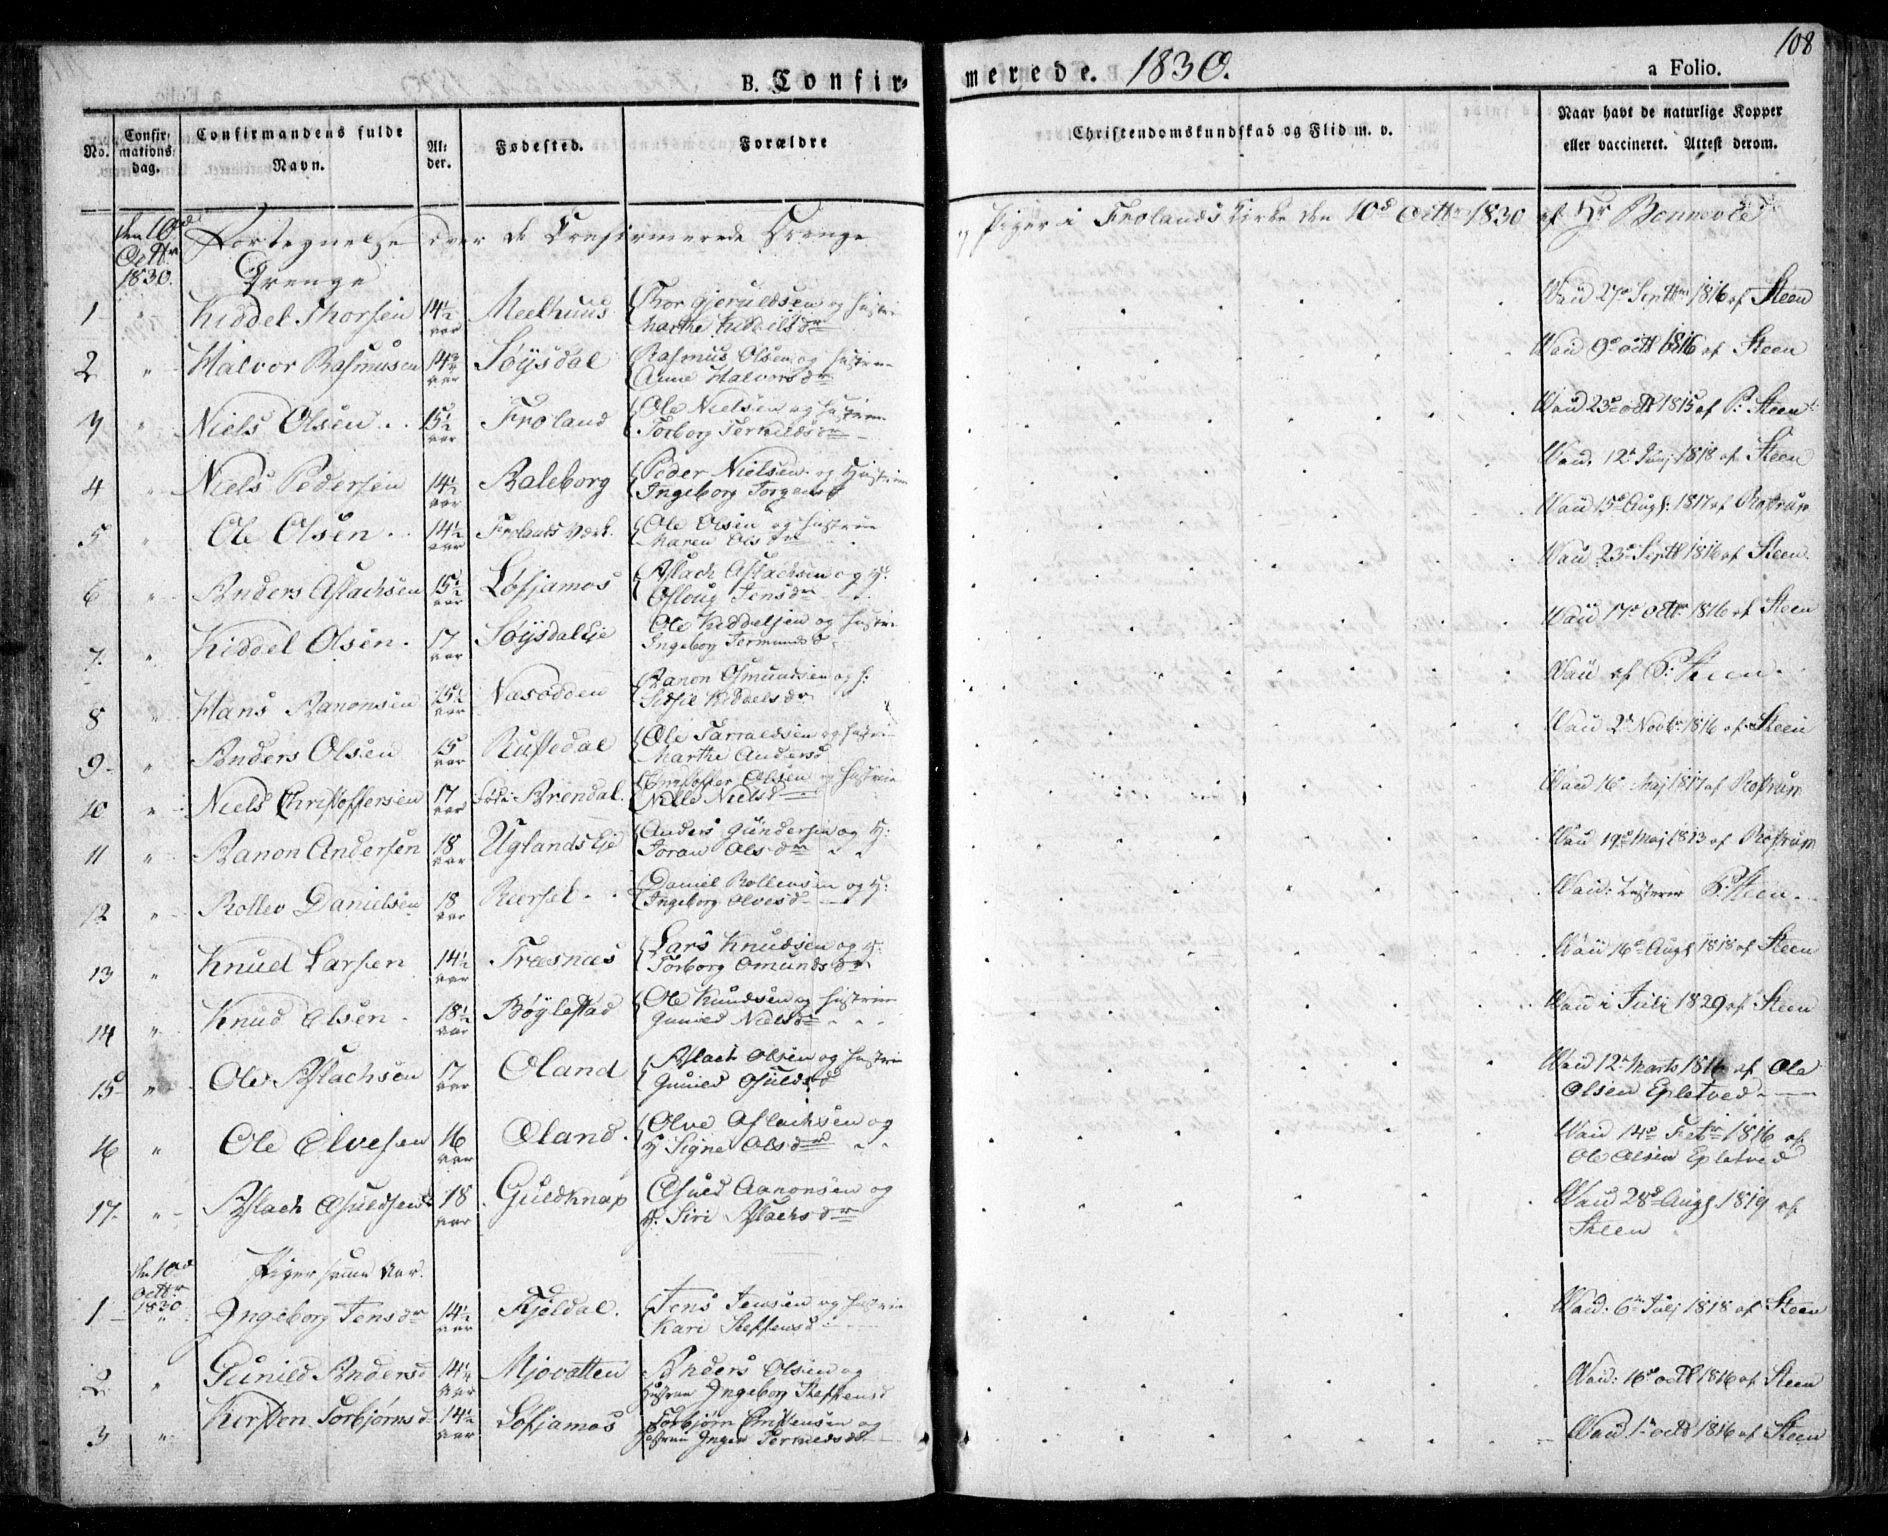 B. Confirmerede. 1830. 108
a Folio.
No. Confirmationsdag. Confirmandens fulde Navn. Alder. Fødested. Forældre Christendomskundskab og Flid m. v. Naar havt de naturlige Kopper eller vaccineret. Attest derom.
den 10d Octbr 1830. Fortegnelse over de Confirmerede Drenge og Piger i Frolands Kirke den 10d Octbr 1830 af Hr Bonnevie
Drenge
1 Kiddel Thorsen 14½ aar Meelhuus Thor Gjeruldsen og Hustru Marthe Kiddelsdr Vaci 27d Septbr 1816 af Steen
2 " Halvor Rasmusen 14¾ aar Søÿsdal Rasmus Olsen og Hustru Anne Halvorsdr Vaci 9d octb 1816 af Steen
3 " Niels Olsen 15½ aar Froland Ole Nielsen og Hustrue Torborg Terkildsdr Vaci 23d octb 1815 af P: Steen
4 " Niels Pedersen 14½ aar Baleborg Peder Nielsen og Hustrue Ingeborg Jorgensd Vaci. 12d Junj 1818 af Steen
5 " Ole Olsen 14½ aar Frolands Værk. Ole Olsen og Hustrue Maren Olsdr Vaci 15d Augs: 1817 af Rostrup
6 " Anders Aslachsen 15½ aar Løfjamos Aslach Aslachsen og H: Osloug Jensdr Vaci 23d Septb 1816 af Steen.
7. " Kiddel Olsen. 17 aar Søÿsdal Eje Ole Kiddelsen og Hustru Ingeborg Termundsd Vaci 17d octbr 1816 af Steen
8 " Hans Aanonsen 15½ aar Nasodden Aanon Osmundsen og H: Kiddelsdr Vaci af P: Steen.
9 " Anders Olsen 15 aar Rustedal Ole Tarraldsen og Hustru Marthe Andersd Vaci 2d Novbr. 1816 af Steen
10 " Niels Christoffersen 17 aar Brendal. Christoffer Olsen og Hustrue Nille Nielsd Vaci 16 Maj 1817 af Rostrup
11 " Aanon Andersen 18 aar Uglands Eje Anders Gundersen og H: Joran Olsdr Vaci 19d Maj 1813 af Rostrup
12 " Rollev Danielsen 18 aar Daniel Rollevsen og H: Ingeborg Olvesd Vaci: P: Steen
13 " Knud Larsen 14½ aar Træsnæs Lars Knudsen og H: Torborg Omundsdr Vaci 16d Augs 1818 af Steen
14 " Knud Olsen 18½ aar Bøÿlestad Ole Knudsen og Hustrue Gunild Nielsdr Vaci i Juli 1829 af Steen
15 " Ole Aslachsen 17 aar Oland Aslach Olsen og Hustru Gunild Osuldsd Vaci 12d Marts 1816 af Ole Olsen Epletved
16 " Ole Olvesen 16 aar Oland. Olve Aslachsen og H Signe Olsdr Vaci 14d Febr 1816 af Ole Olsen Epletved
17. " Aslach Osuldsen 18 aar Guldknap Osuld Aanonsen og H. Siri Aslachsdr Vaci 28d Augs 1819 af Steen
den 10d octbr 1830 Piger samme Aar.
1 " Ingeborg Jensdr 14½ aar Fjeldal. Jens Jensen og Hustrue Kari Steffensd Vaci: 6d Julj 1818 af Steen
2. " Gunild Andersd 14¼ aar Mjovatten Anders Olsen og Hustrue Ingeborg Steffensd Vaci: 16d octb 1816 af Steen
3 " Kirsten Torbjørnsd 14½ aar Løfjamos Torbjørn Christensen og Hustrue Inger Terkildsd Vaci 1d octb 1816 af Steen